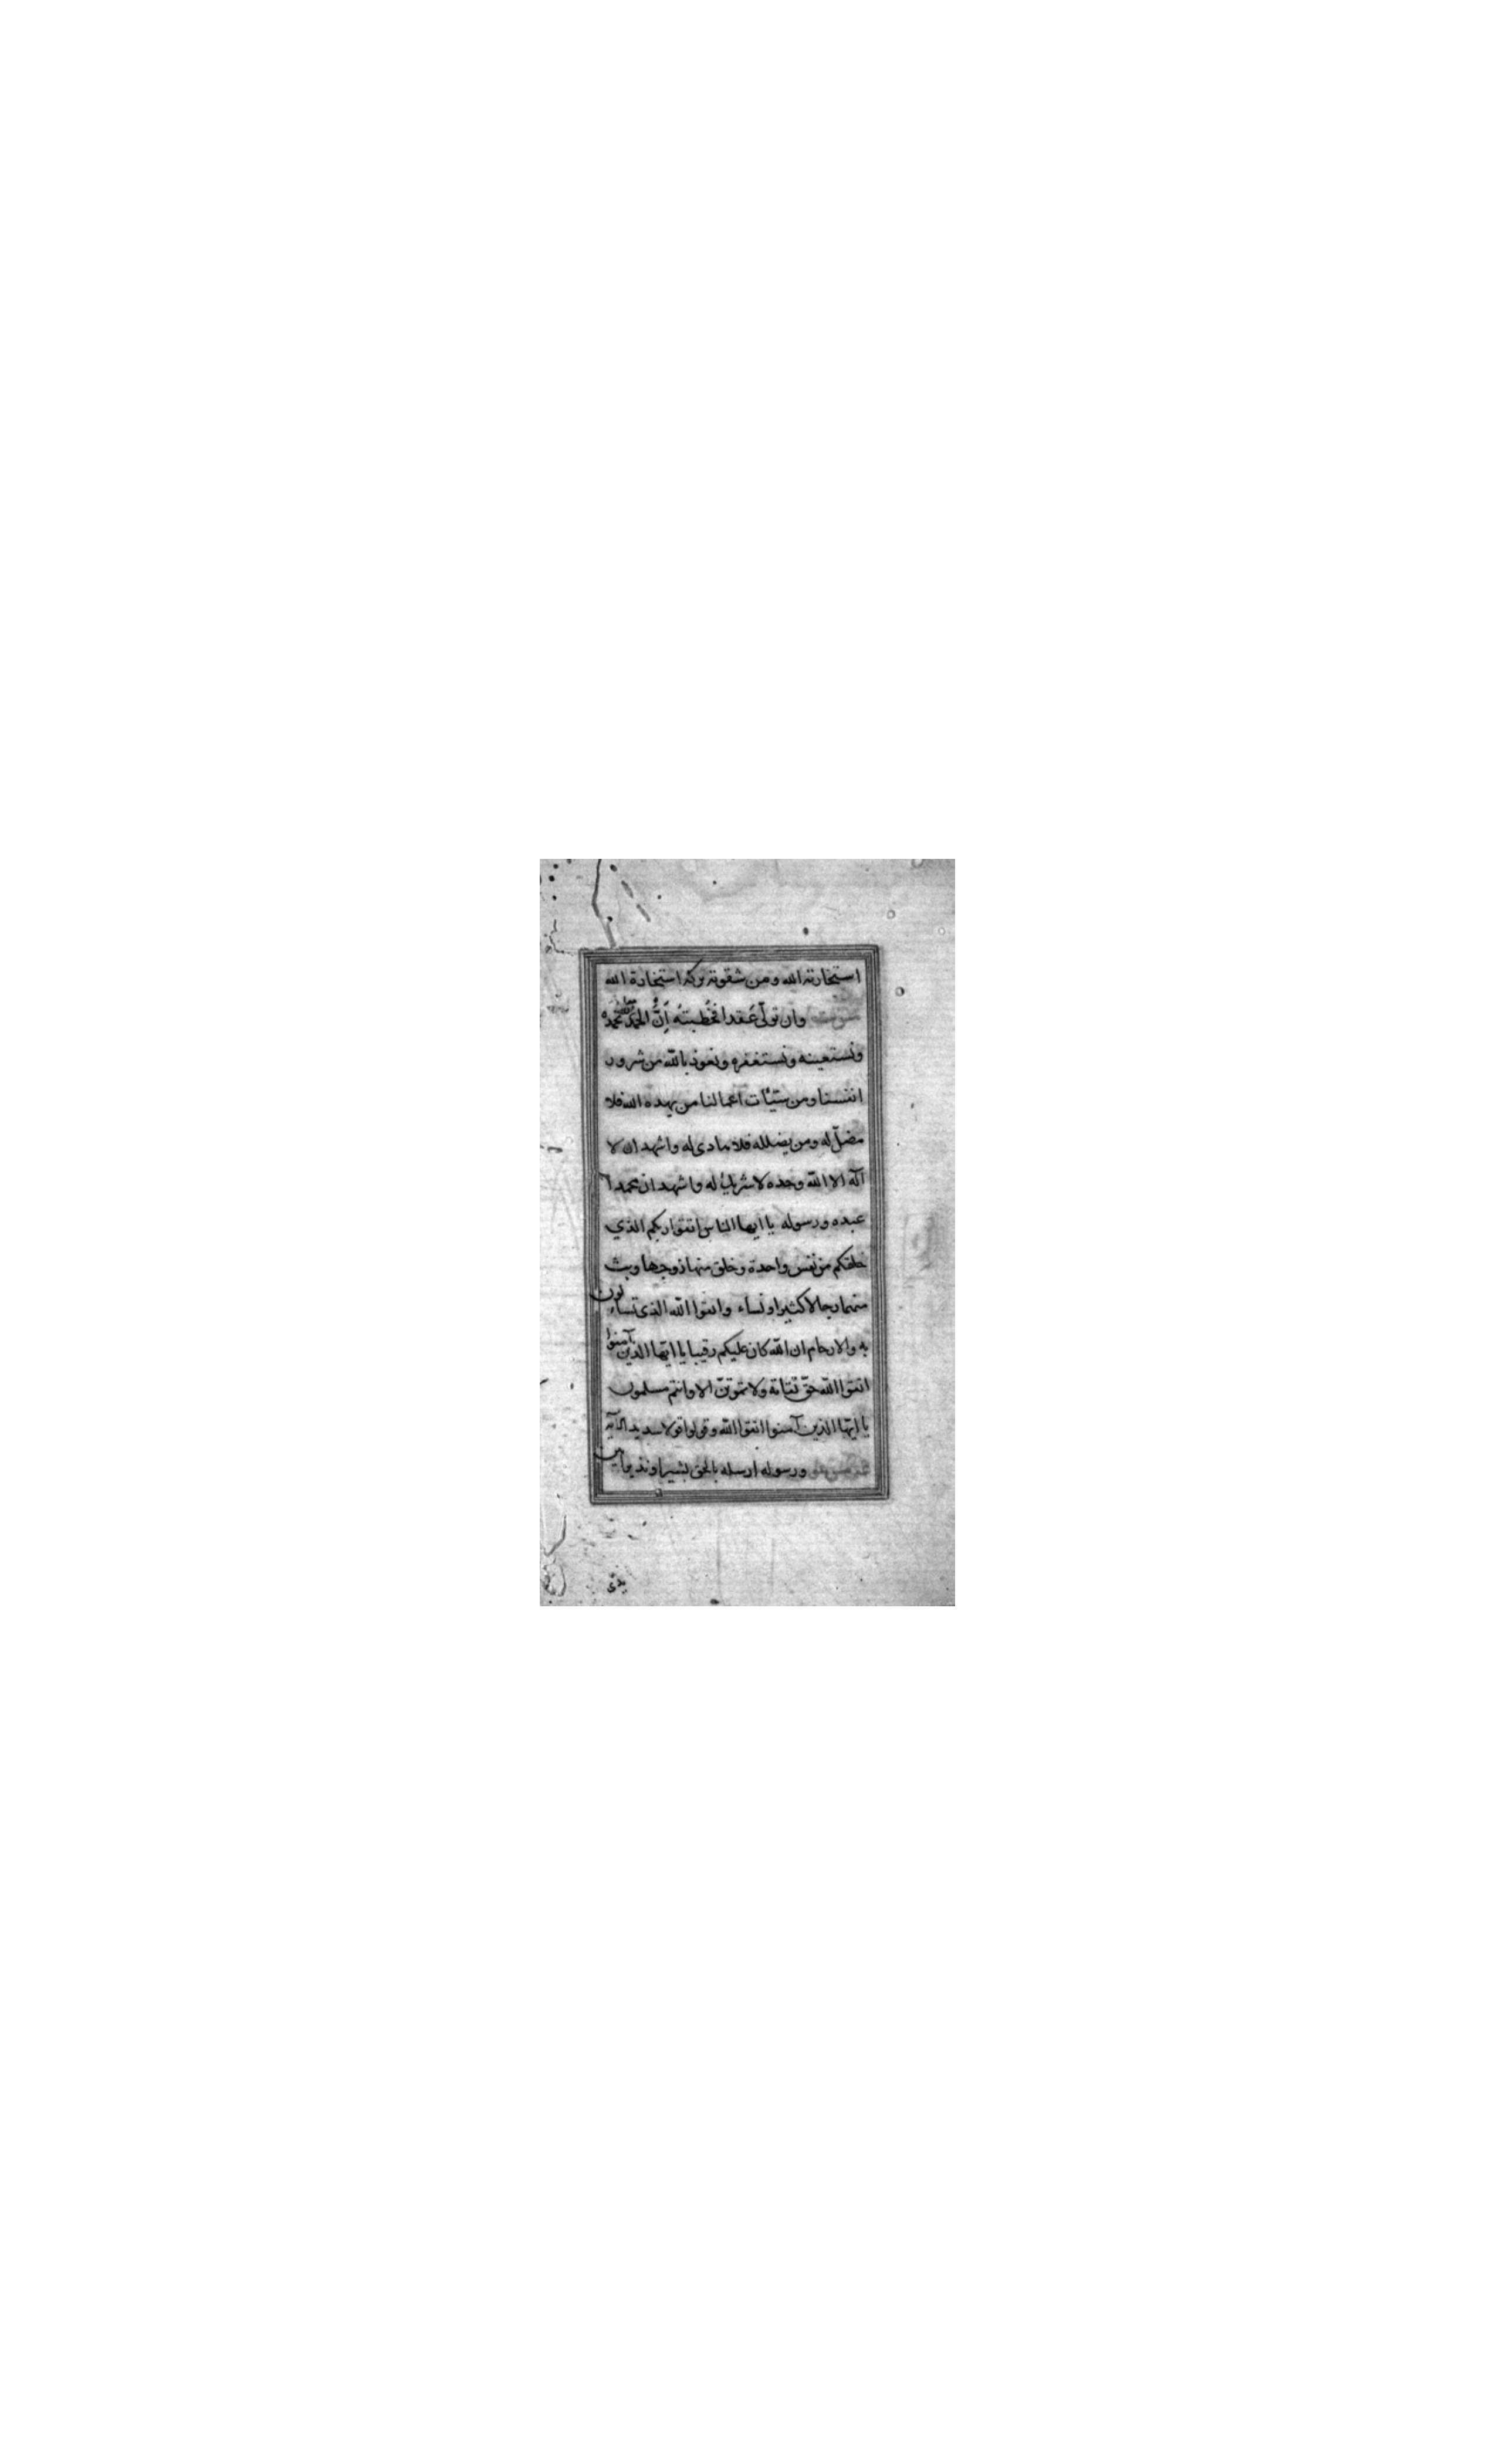 استخارته الله ومن شقوته تركه استخارة الله
وان تولّى عَقدا فخُطبتُه اِنَّ الحمدُ لله نحمده
ونستعينه ونستغفره ونعوذ بالله من شرور
انفسنا ومن سيّئات اعمالنا من يهده الله فلا
مضلّ له ومن يضلله فلا هادى له واشهد ان لا
اله الا الله وحده لا شريك له واشهد ان محمدا
عبده ورسوله يا ايها الناس اتقوا ربكم الذي
خلقكم من نفس واحدة وخلق منها زوجها وبث
منهما رجالا كثيرا ونساء واتقوا الله الذى تساءلون
به والارحام ان الله كان عليكم رقيبا يا ايّها الذين آمنوا
اتقوا الله حقّ تقاته ولا تموتنّ الا وانتم مسلمون
يا ايّها الذين آمنوا اتقوا الله وقولوا قولا سديدا الآية
ورسوله ارسله بالحق بشيرا ونذيرا بين
يدى